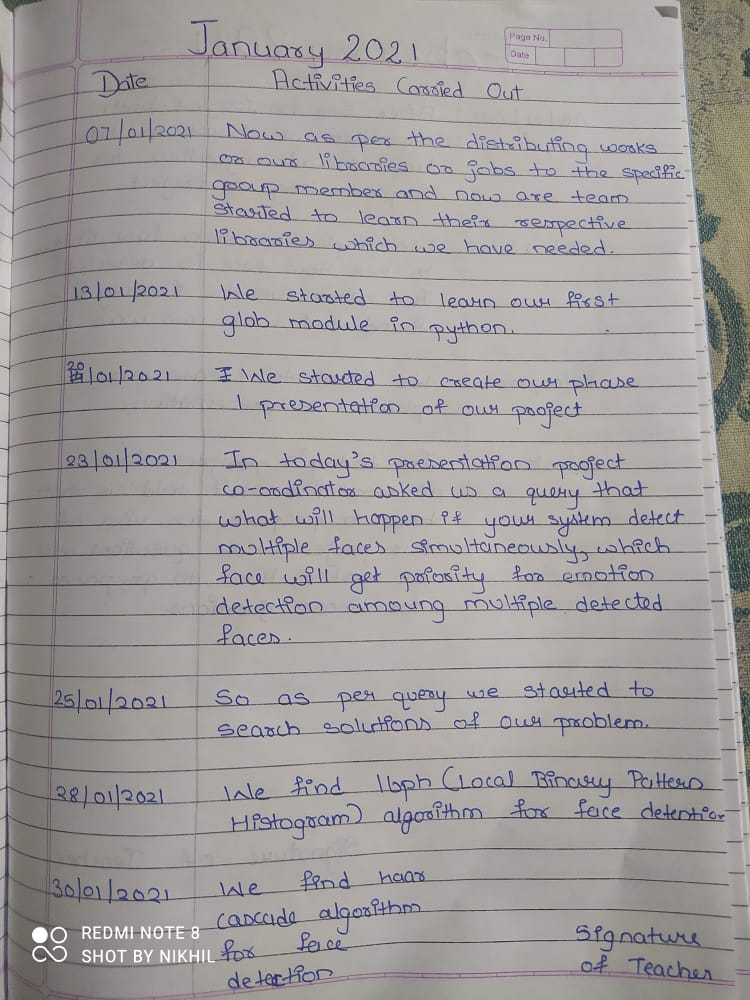 January 2021
Page No.
Date
Date Activities Carried Out
07/01/2021 Now as per the distributing works
or our libraries or jobs to the specific
group member and now are team
started to learn their respective
libraries which we have needed.
13/01/2021 We started to learn our first
glob module in python.
20/01/2021 I We started to create our phase
1 presentation of our project
23/01/2021 In today's presentation project
co-ordinator asked us a query that
what will happen if your system detect
multiple faces simultaneously, which
face will get priority for emotion
detection amoung multiple detected
faces.
25/01/2021 So as per query we started to
search solutions of our problem.
28/01/2021 We find lbph (Local Binary Pattern
Histogram) algorithm for face detention
30/01/2021 We find haar
cascade algorithm
for face
detection
Signature
of Teacher
REDMI NOTE 8
SHOT BY NIKHIL